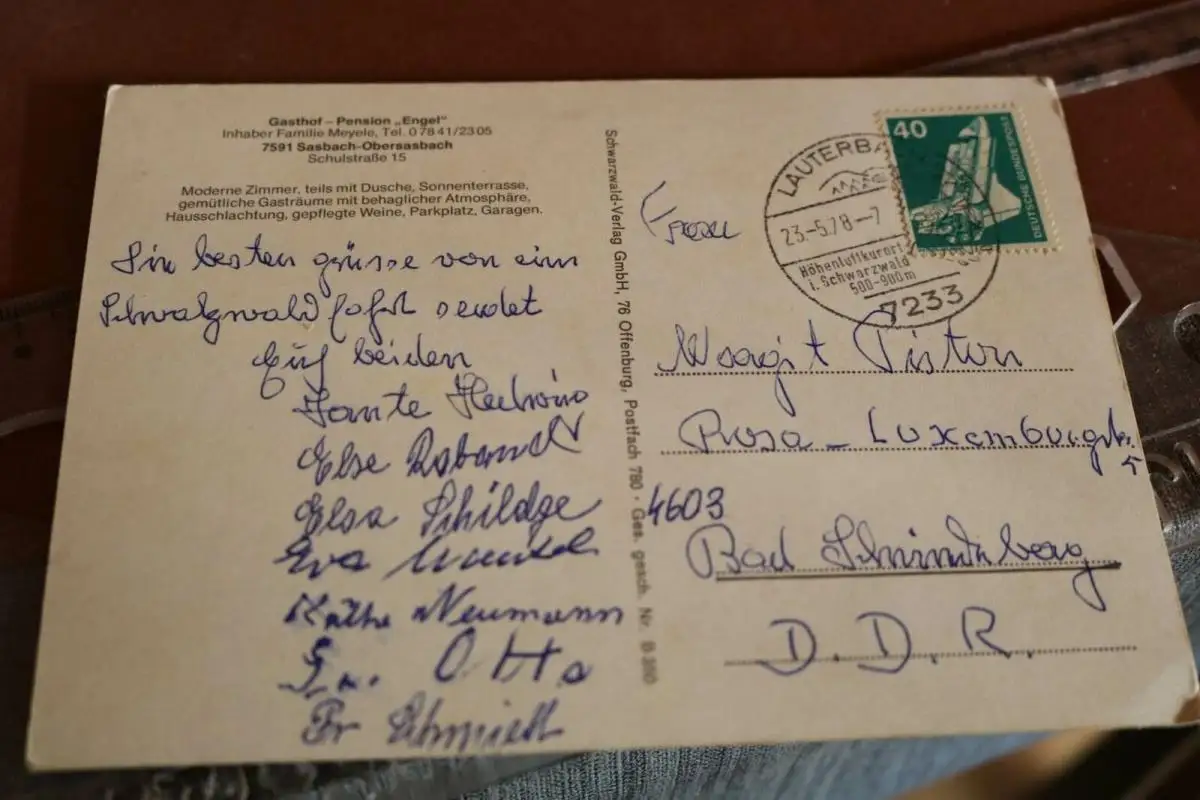 Gasthof – Pension „Engel"
Inhaber Familie Meyele, Tel. 0 78 41/23 05
7591 Sasbach-Obersasbach
Schulstraße 15
Moderne Zimmer, teils mit Dusche, Sonnenterrasse,
gemütliche Gasträume mit behaglicher Atmosphäre,
Hausschlachtung, gepflegte Weine, Parkplatz, Garagen.
besten grüsse von ein
Schwalzwald fahrt sendet
Euch beiden
Tante
Else
Elsa Schildge
Eva
Käthe Neumann
Fr. Otto
Fr Schmidt
Schwarzwald-Verlag GmbH, 76 Offenburg, Postfach 780 · Ges. gesch. Nr. B
LAUTERBA
23.-5.78-7
Höhenluftkurort
i. Schwarzwald
500-900m
7233
40
DEUTSCHE BUNDESPOST
Frau
Margit Piston
Rosa - Luxemburgstr.
4603
Bad Schmiedeberg
D. D. R.